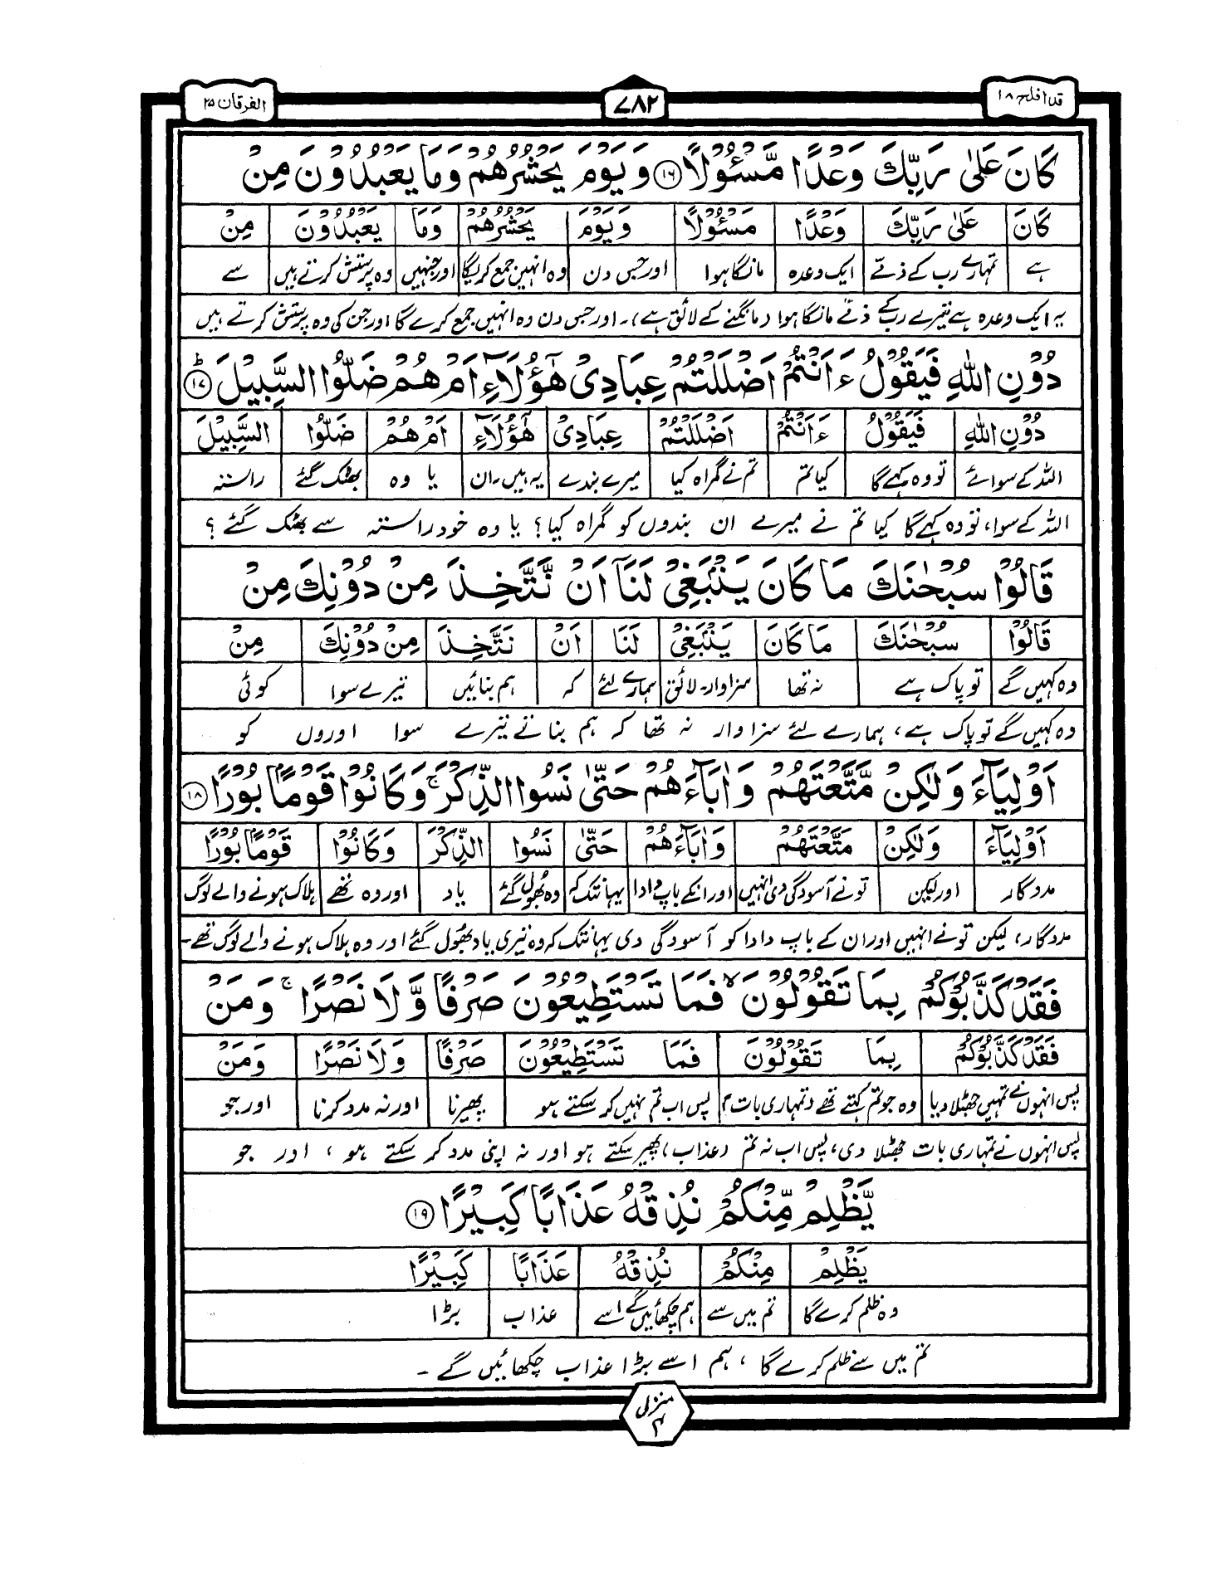 قد افلح ۱۸
۷۸۲
الفرقان ۲۵
كَانَ عَلٰى رَبِّكَ وَعْدًا مَّسْـُٔوْلًا ۝۱۶ وَيَوْمَ يَحْشُرُهُمْ وَمَا يَعْبُدُوْنَ مِنْ
كَانَ | عَلٰى رَبِّكَ | وَعْدًا | مَسْـُٔوْلًا | وَيَوْمَ | يَحْشُرُهُمْ | وَمَا | يَعْبُدُوْنَ | مِنْ
ہے | تمہارے رب کے ذمّے | ایک وعدہ | مانگا ہوا | اور جس دن | وہ انہیں جمع کریگا | اور جنہیں | وہ پرستش کرتے ہیں | سے
یہ ایک وعدہ ہے تیرے رب کے ذمّے مانگا ہوا (مانگنے کے لائق ہے)۔ اور جس دن وہ انہیں جمع کرے گا اور جن کی وہ پرستش کرتے ہیں
دُوْنِ اللّٰهِ فَيَقُوْلُ ءَاَنْتُمْ اَضْلَلْتُمْ عِبَادِىْ هٰٓؤُلَآءِ اَمْ هُمْ ضَلُّوا السَّبِيْلَ ۝۱۷ؕ
دُوْنِ اللّٰهِ | فَيَقُوْلُ | ءَاَنْتُمْ | اَضْلَلْتُمْ | عِبَادِىْ | هٰٓؤُلَآءِ | اَمْ هُمْ | ضَلُّوا | السَّبِيْلَ
اللہ کے سوائے | تو وہ کہے گا | کیا تم | تم نے گمراہ کیا | میرے بندے | یہ ہیں۔ ان | یا وہ | بھٹک گئے | راستہ
اللہ کے سوا، تو وہ کہے گا کیا تم نے میرے ان بندوں کو گمراہ کیا؟ یا وہ خود راستہ سے بھٹک گئے؟
قَالُوْا سُبْحٰنَكَ مَا كَانَ يَنْۢبَغِىْ لَنَآ اَنْ نَّتَّخِذَ مِنْ دُوْنِكَ مِنْ
قَالُوْا | سُبْحٰنَكَ | مَا كَانَ | يَنْۢبَغِىْ | لَنَا | اَنْ | نَتَّخِذَ | مِنْ دُوْنِكَ | مِنْ
وہ کہیں گے | تو پاک ہے | نہ تھا | سزاوار۔ لائق | ہمارے لئے | کہ | ہم بنائیں | تیرے سوا | کوئی
وہ کہیں گے تو پاک ہے، ہمارے لئے سزاوار نہ تھا کہ ہم بناتے تیرے سوا اوروں کو
اَوْلِيَآءَ وَلٰكِنْ مَّتَّعْتَهُمْ وَاٰبَآءَهُمْ حَتّٰى نَسُوا الذِّكْرَ ۚ وَكَانُوْا قَوْمًۢا بُوْرًا ۝۱۸
اَوْلِيَآءَ | وَلٰكِنْ | مَتَّعْتَهُمْ | وَاٰبَآءَهُمْ | حَتّٰى | نَسُوا | الذِّكْرَ | وَكَانُوْا | قَوْمًۢا بُوْرًا
مددگار | اور لیکن | تو نے آسودگی دی انہیں | اور انکے باپ دادا | یہانتک کہ | وہ بھول گئے | یاد | اور وہ تھے | ہلاک ہونے والے لوگ
مددگار، لیکن تو نے انہیں اور ان کے باپ دادا کو آسودگی دی یہانتک کہ وہ تیری یاد بھول گئے اور وہ ہلاک ہونے والے لوگ تھے۔
فَقَدْ كَذَّبُوْكُمْ بِمَا تَقُوْلُوْنَ ۙ فَمَا تَسْتَطِيْعُوْنَ صَرْفًا وَّلَا نَصْرًا ۚ وَمَنْ
فَقَدْ كَذَّبُوْكُمْ | بِمَا تَقُوْلُوْنَ | فَمَا تَسْتَطِيْعُوْنَ | صَرْفًا | وَلَا نَصْرًا | وَمَنْ
پس انہوں نے تمہیں جھٹلا دیا | وہ جو تم کہتے تھے (تمہاری بات) | پس اب تم نہیں کر سکتے ہو | پھیرنا | اور نہ مدد کرنا | اور جو
پس انہوں نے تمہاری بات جھٹلا دی، پس اب نہ تم (عذاب) پھیر سکتے ہو اور نہ اپنی مدد کر سکتے ہو، اور جو
يَّظْلِمْ مِّنْكُمْ نُذِقْهُ عَذَابًا كَبِيْرًا ۝۱۹
يَظْلِمْ | مِنْكُمْ | نُذِقْهُ | عَذَابًا | كَبِيْرًا
وہ ظلم کرے گا | تم میں سے | ہم چکھائیں گے اسے | عذاب | بڑا
تم میں سے ظلم کرے گا، ہم اسے بڑا عذاب چکھائیں گے۔
منزل ۴